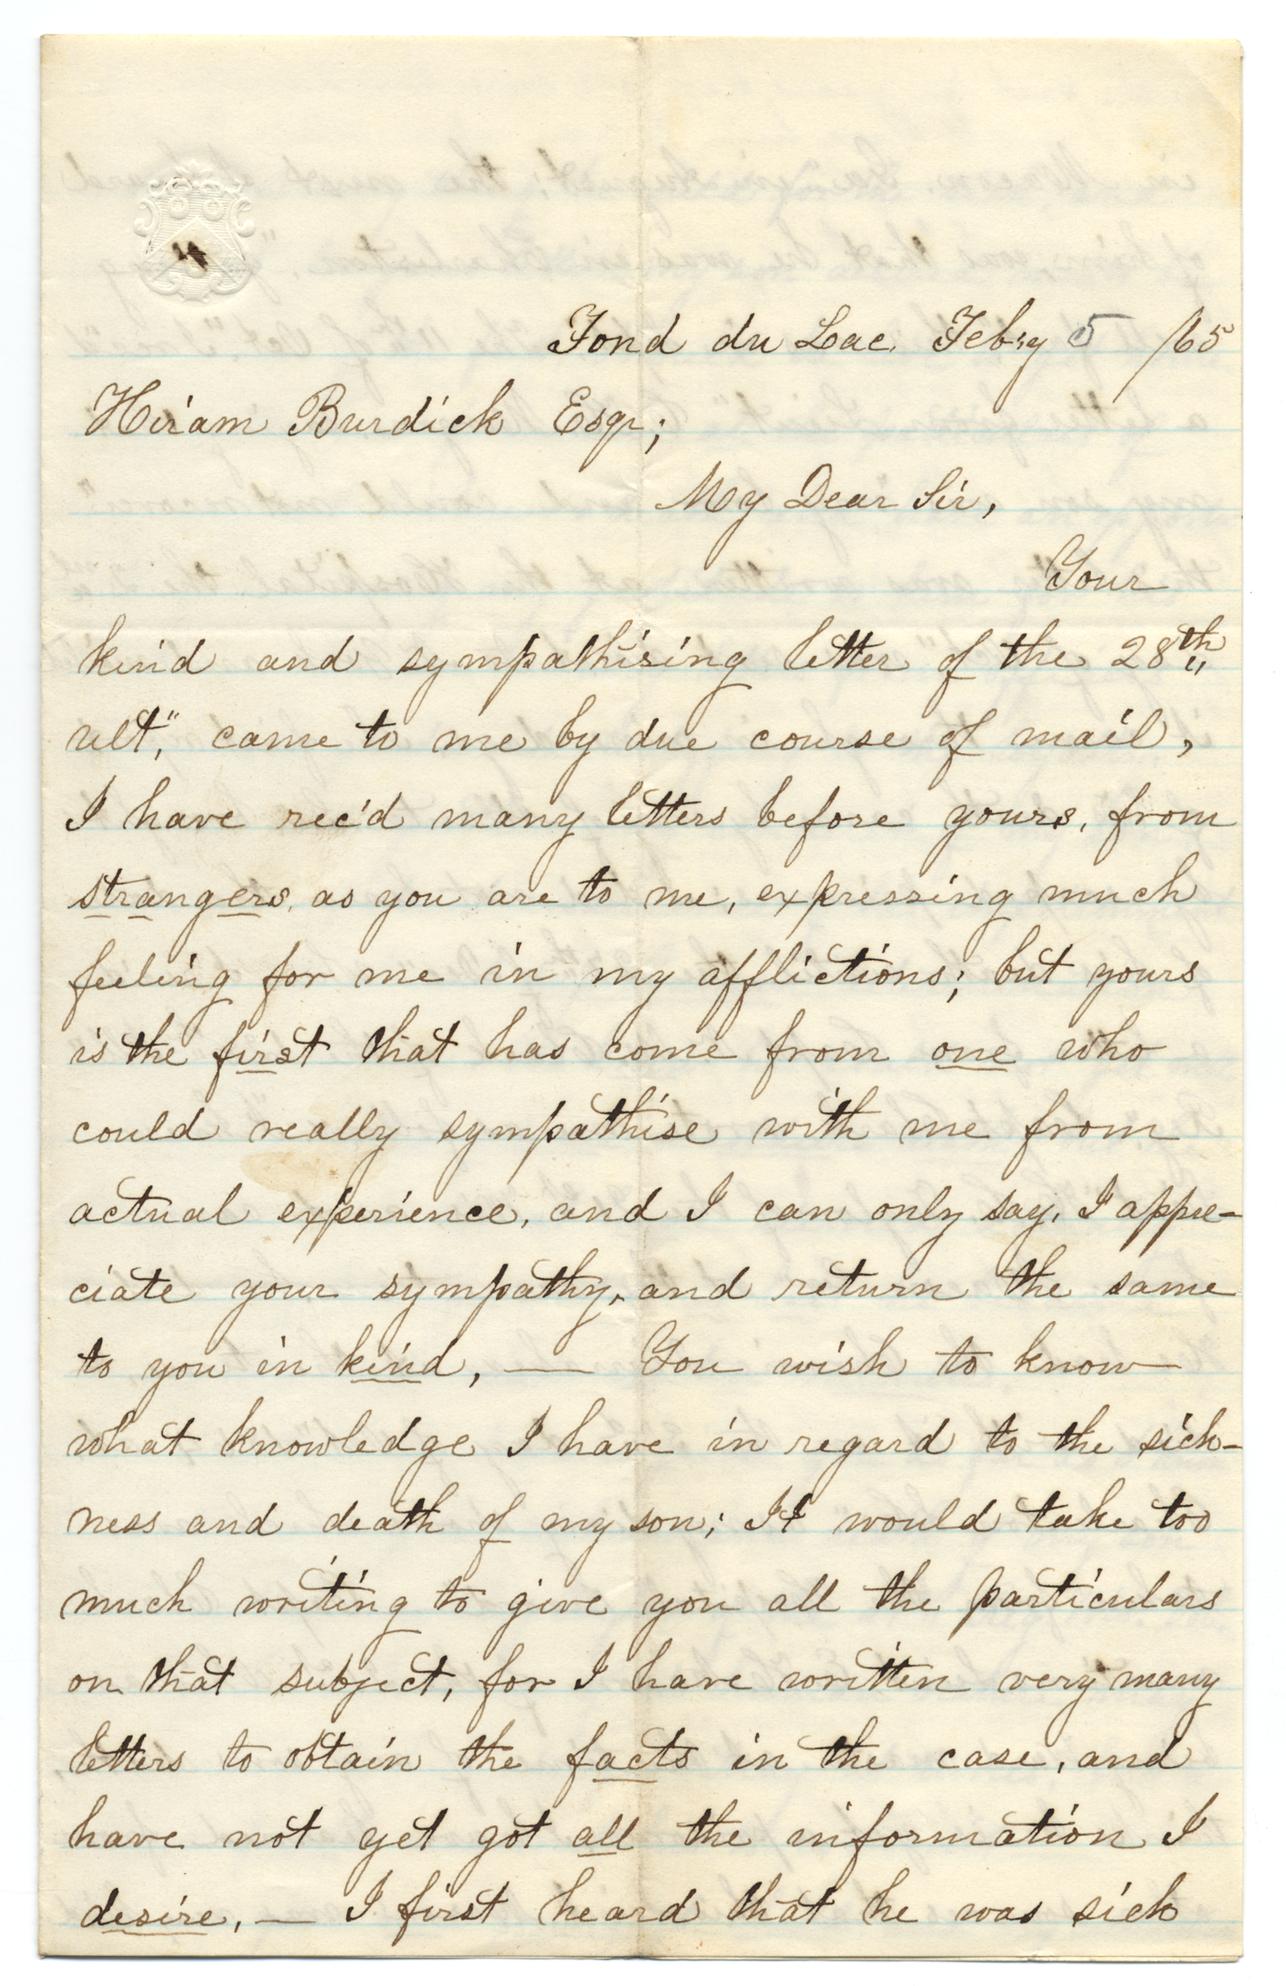 Fond du Lac. Feby 5 /65
Hiram Burdick Esqr;
My Dear Sir,
Your
kind and sympathising letter of the 28th
ult," came to me by due course of mail,
I have rec'd many letters before yours, from
strangers, as you are to me, expressing much
feeling for me in my afflictions; but yours
is the first that has come from one who
could really sympathise with me from
actual experience, and I can only say, I appre-
ciate your sympathy, and return the same
to you in kind, — You wish to know
what knowledge I have in regard to the sick-
ness and death of my son; It would take too
much writing to give you all the particulars
on that subject, for I have written very many
letters to obtain the facts in the case, and
have not yet got all the information I
desire, — I first heard that he was sick